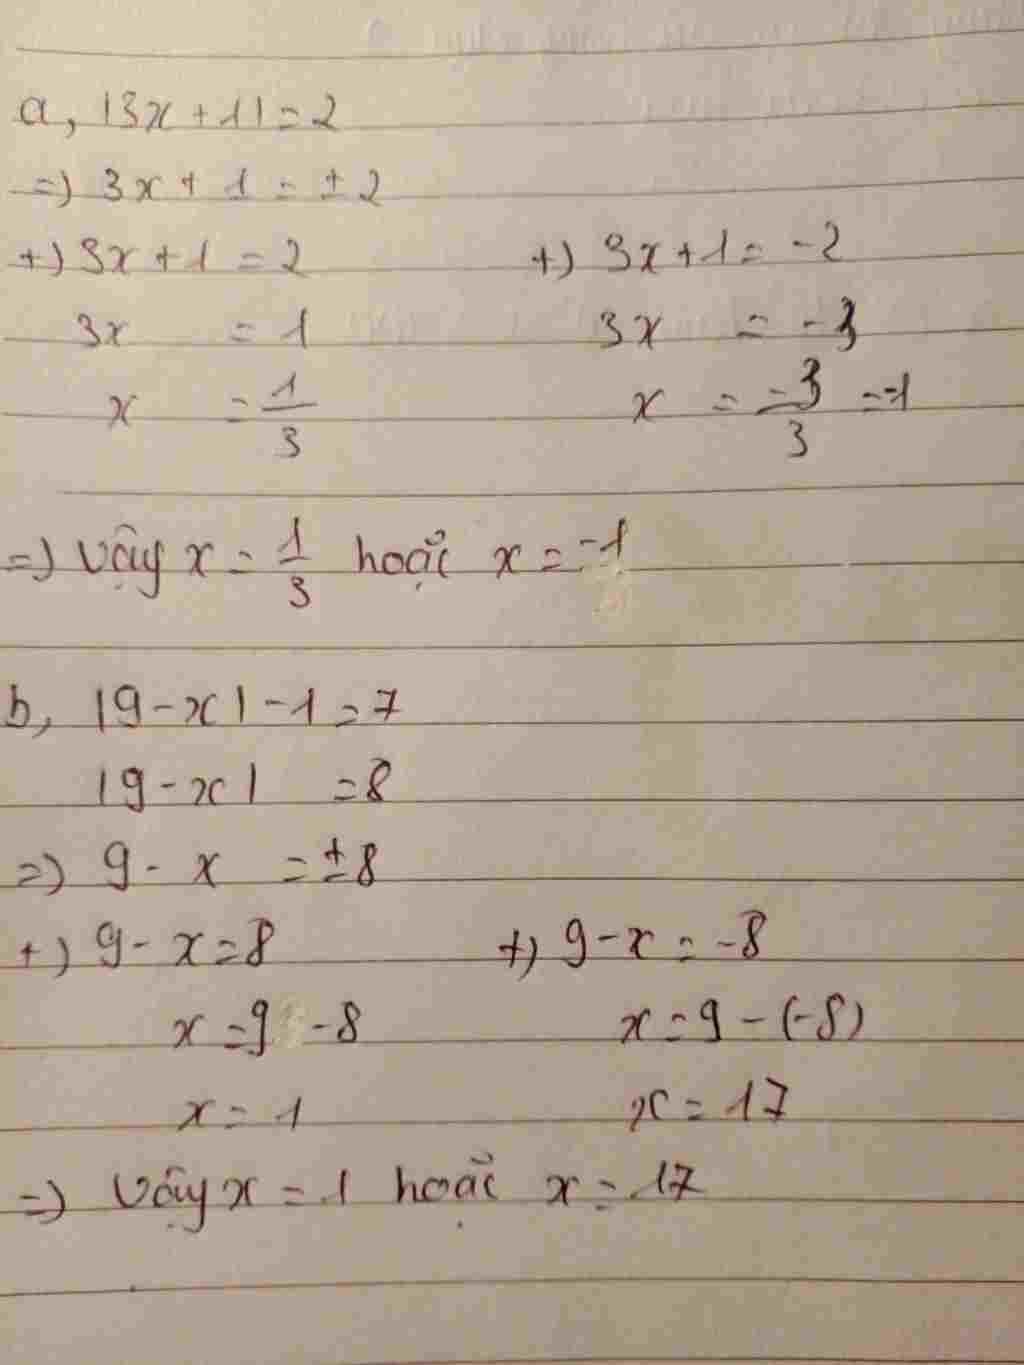 a, |3x + 1| = 2
=) 3x + 1 = ± 2
+) 3x + 1 = 2 +) 3x + 1 = -2
3x = 1 3x = -3
x = 1/3 x = -3/3 = -1
=) Vậy x = 1/3 hoặc x = -1
b, |9 - x| - 1 = 7
|9 - x| = 8
=) 9 - x = ±8
+) 9 - x = 8 +) 9 - x = -8
x = 9 - 8 x = 9 - (-8)
x = 1 x = 17
=) Vậy x = 1 hoặc x = 17